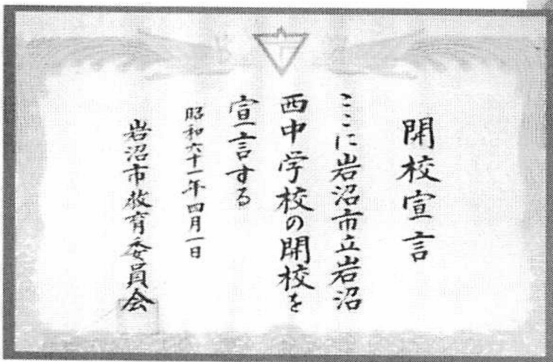 開校宣言
ここに岩沼市立岩沼
西中学校の開校を
宣言する
昭和六十一年四月一日
岩沼市教育委員会